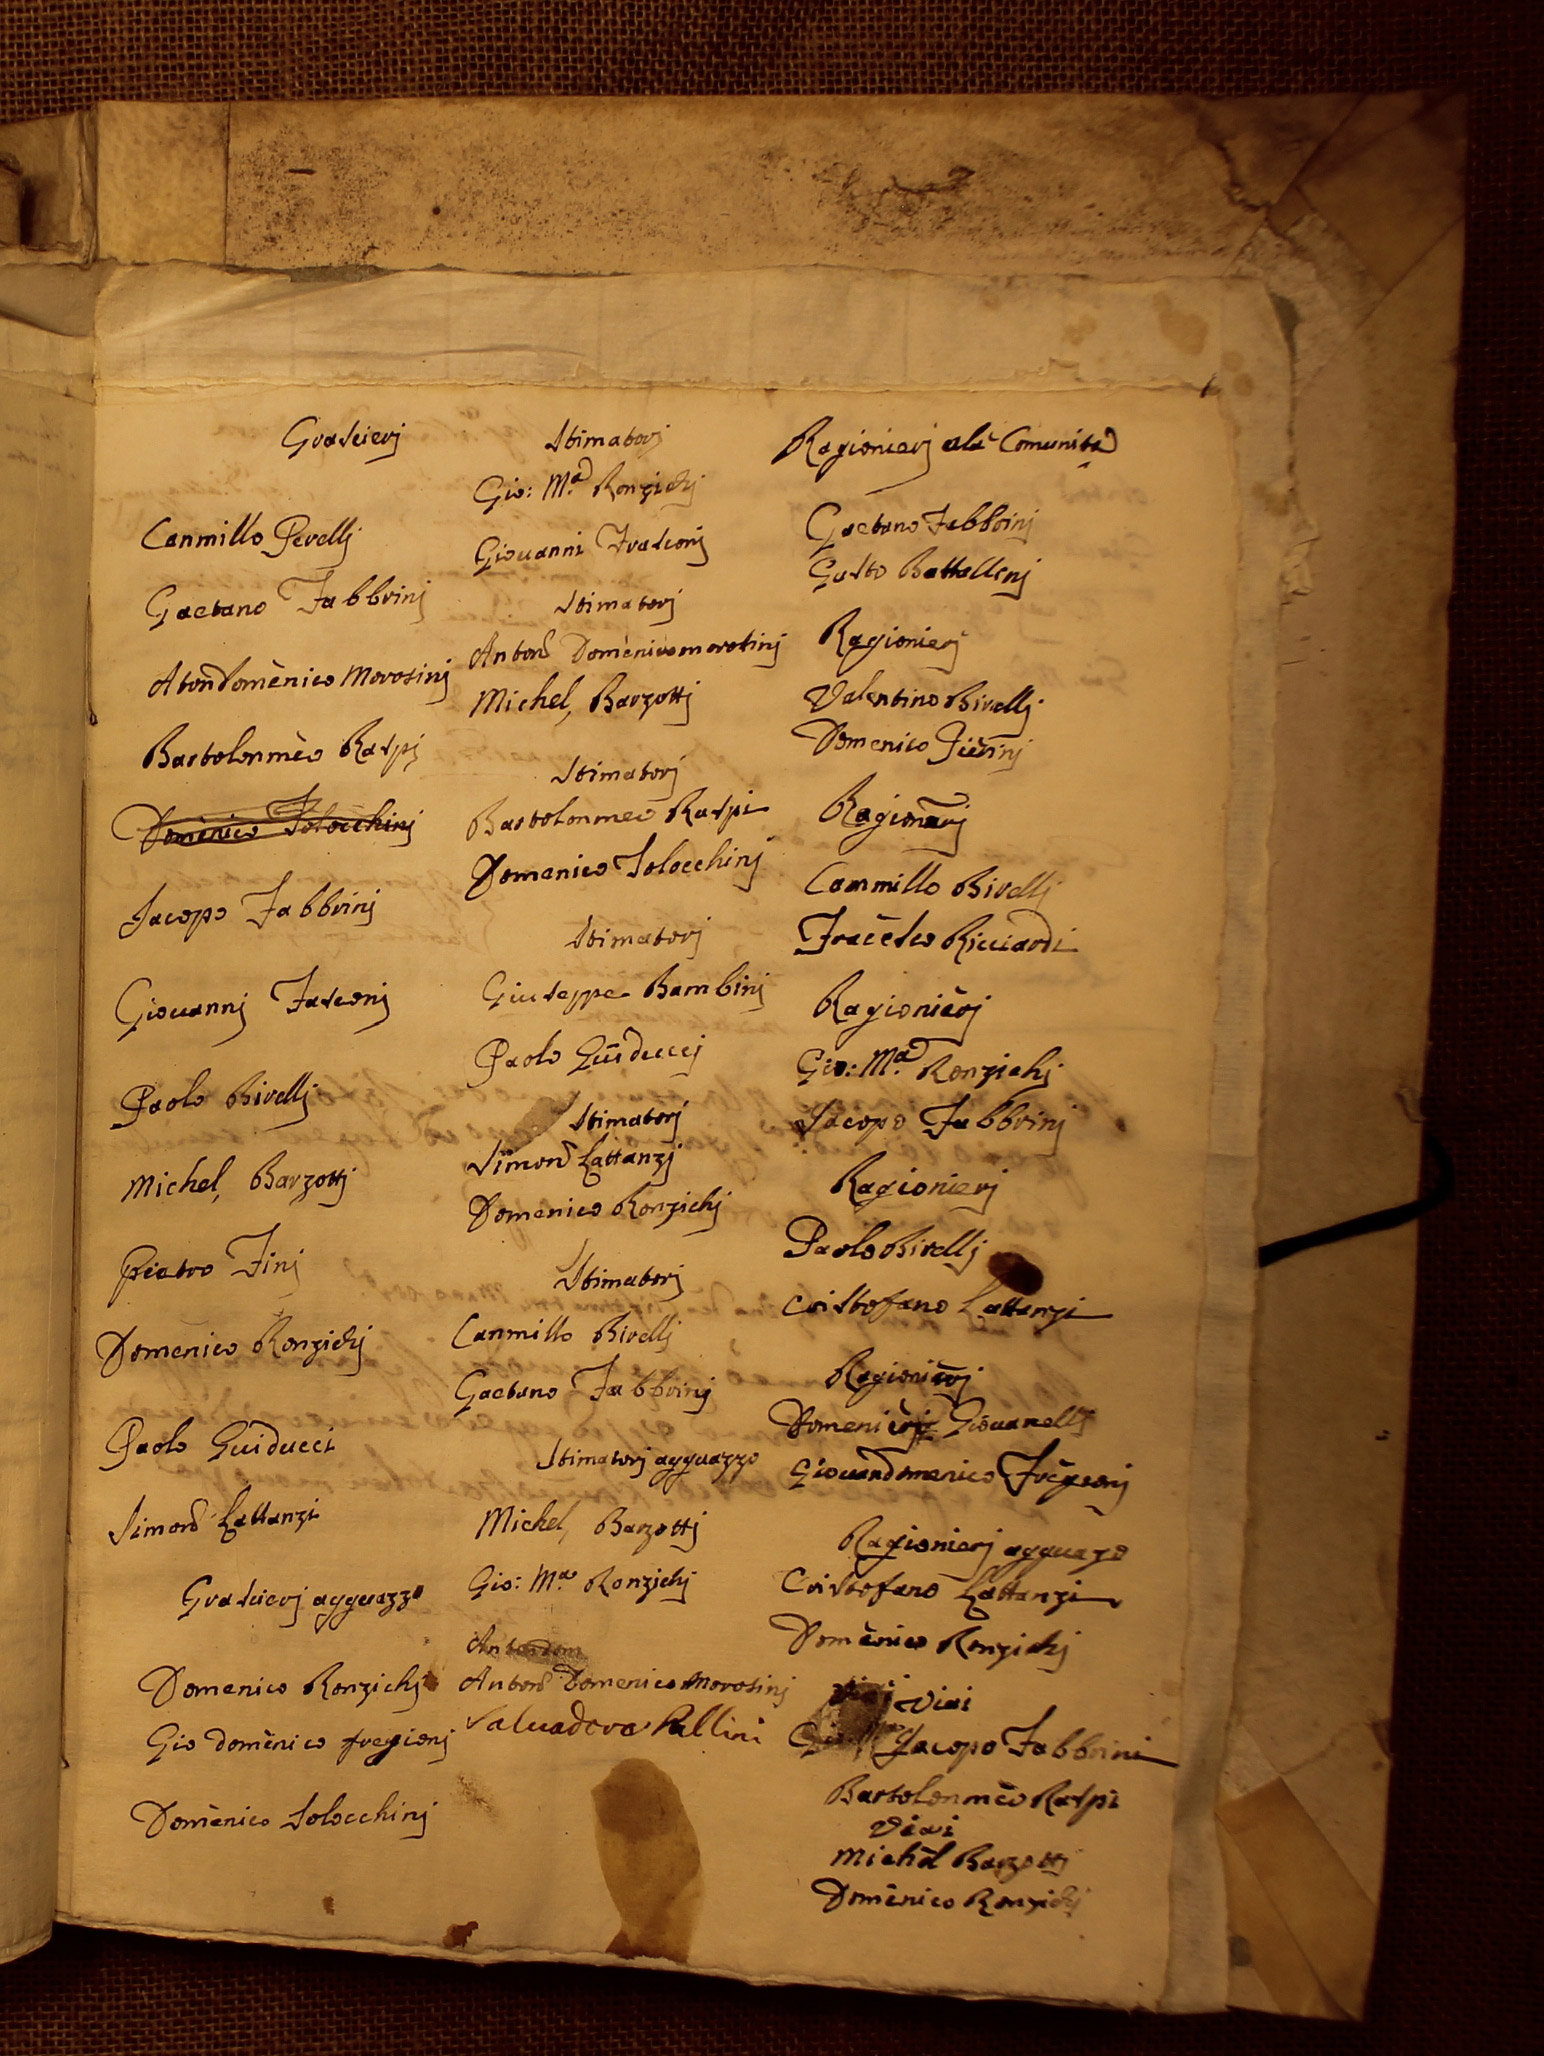 Grascierj
Canmillo Perellj
Gaetano Fabbrinj
Atondomenico Morosinj
Bartolonmeo Raspj
Domenico Solocchinj
Jacopo Fabbrinj
Giouannj Fasconj
Paolo Birellj
Michel, Barzottj
Pietro Finj
Domenico Ronzichj
Paolo Guiducci
Simond Lattanzi
Grascierj agguazzo
Domenico Ronzichj
Gio domenico fregionj
Domenico Solocchinj
Stimatorj
Gio: Ma Ronzichj
Giouanni Frasconj
Stimatorj
Anton Domenico morosinj
Michel, Barzottj
Stimatorj
Bartolonmeo Raspi
Domenico Solocchinj
Stimatorj
Giuseppe Bambinj
Paolo Guiduccj
Stimatorj
Simond Lattanzj
Domenico Ronzichj
Stimatorj
Canmillo Birellj
Gaetano Fabbrinj
Stimatorj agguazzo
Michel, Barzottj
Gio: Ma Ronzichj
Antondom
Anton Domenico Morosinj
Saluadora Pallini
Ragionierj ala Comunita
Gaetano Fabbrinj
Gusto Battellenj
Ragionierj
Valentino Birellj
Domenico
Ragionarj
Cammillo Birellj
Fracesco Ricciardi
Ragionierj
Gio: Ma Ronzichj
Jacopo Fabbrinj
Ragionierj
Paolo Birellj
Cristofano Lattanzi
Ragionierj
Giouanellj
Giouandomenico Fregeonj
Ragionierj agguazo
Cristofano Lattanzi
Domenico Ronzichj
Viai
Jacopo Fabbrini
Bartolonmeo Raspi
Viai
Michel Barzottj
Domenico Ronzichj